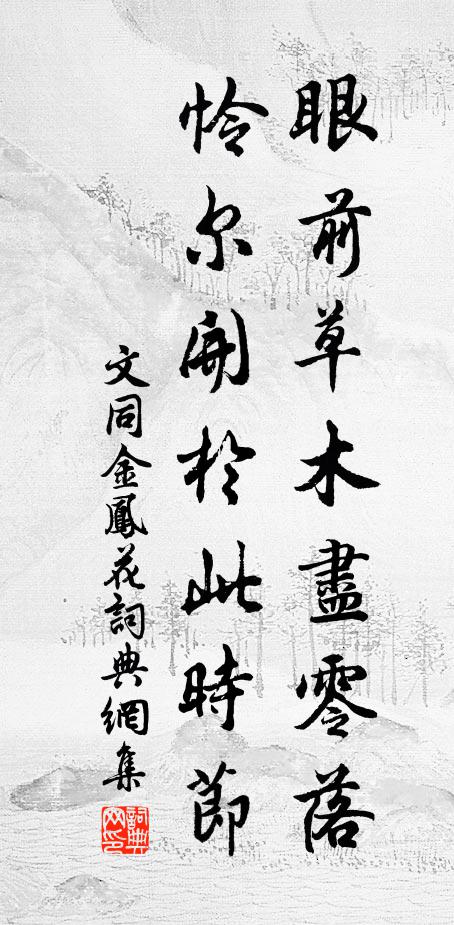 眼前草木盡零落
怜尔開於此時節
文同金鳳花詞典網集
詞典网印